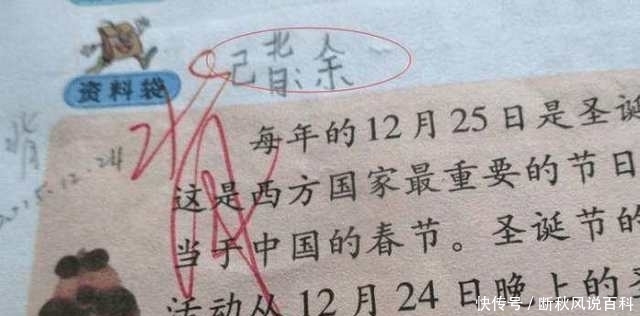 己背:余
资料袋
背
背
2015.12.24
每年的12月25日是圣诞
这是西方国家最重要的节日
当于中国的春节。圣诞节的
活动从12月24日晚上的
快传号 / 断秋风说百科